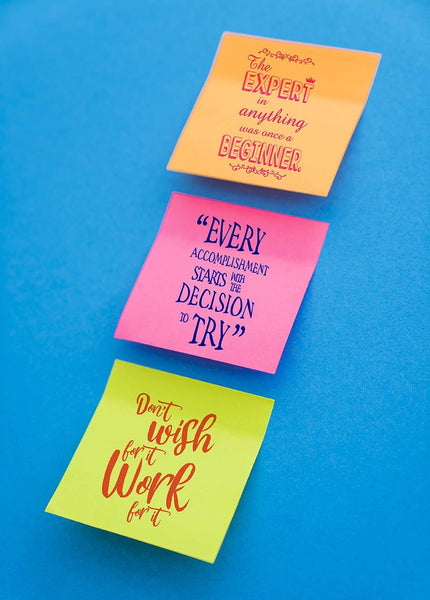 The
EXPERT
in
anything
was once a
BEGINNER.
“EVERY
ACCOMPLISHMENT
STARTS WITH THE
DECISION
TO TRY”
Don't
wish
for it
Work
for it